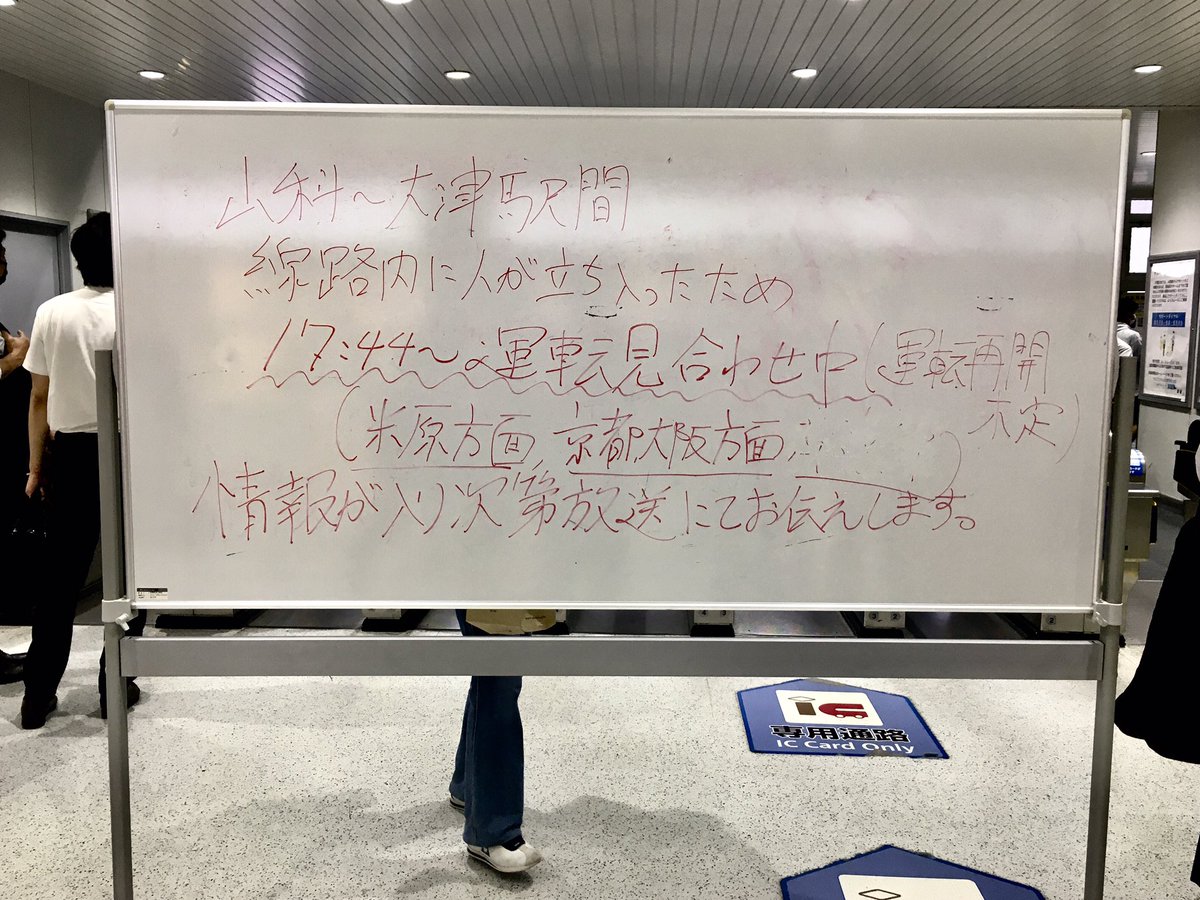 山科～大津駅間
線路内に人が立ち入ったため
17:44～運転見合わせ中(運転再開
未定)
(米原方面、京都、大阪方面
情報が入り次第放送にてお伝えします。
IC
専用通路
IC Card Only